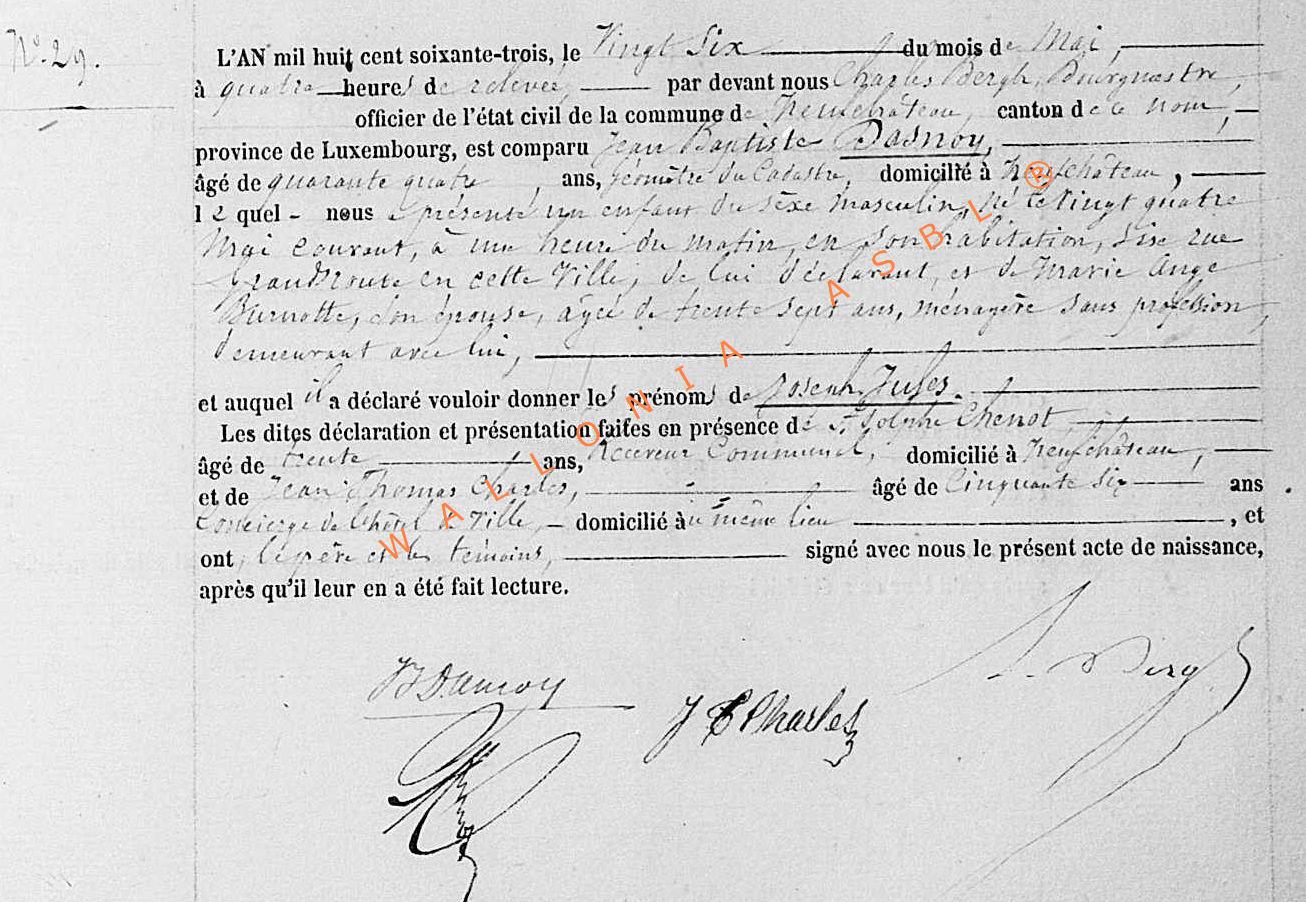 N° 29.
L'AN mil huit cent soixante-trois, le Vingt Six du mois de Mai,
à quatre heures de relevée, par devant nous Charles Bergh, Bourgmestre,
officier de l'état civil de la commune de Neufchâteau, canton de ce nom,
province de Luxembourg, est comparu Jean Baptiste Dasnoy,
âgé de quarante quatre, ans, géomètre du Cadastre, domicilié à Neufchâteau,
lequel - nous a présenté un enfant du sexe masculin, né le vingt quatre
Mai courant, à une heure du matin, en son habitation, sise rue
Grand'route en cette Ville, de lui déclarant, et de Marie Ange
Burnotte, son épouse, âgée de trente sept ans, ménagère sans profession,
demeurant avec lui,
et auquel il a déclaré vouloir donner les prénoms de Joseph Jules.
Les dites déclaration et présentation faites en présence de Adolphe Chenot,
âgé de trente ans, Receveur Communal, domicilié à Neufchâteau,
et de Jean Thomas Charles, âgé de Cinquante six ans
Concierge de l'hôtel de Ville, - domicilié au même lieu, et
ont, le père et les témoins, signé avec nous le présent acte de naissance,
après qu'il leur en a été fait lecture.
JBDasnoy
J T Charles
Bergh
WALLONIA ASBL ®